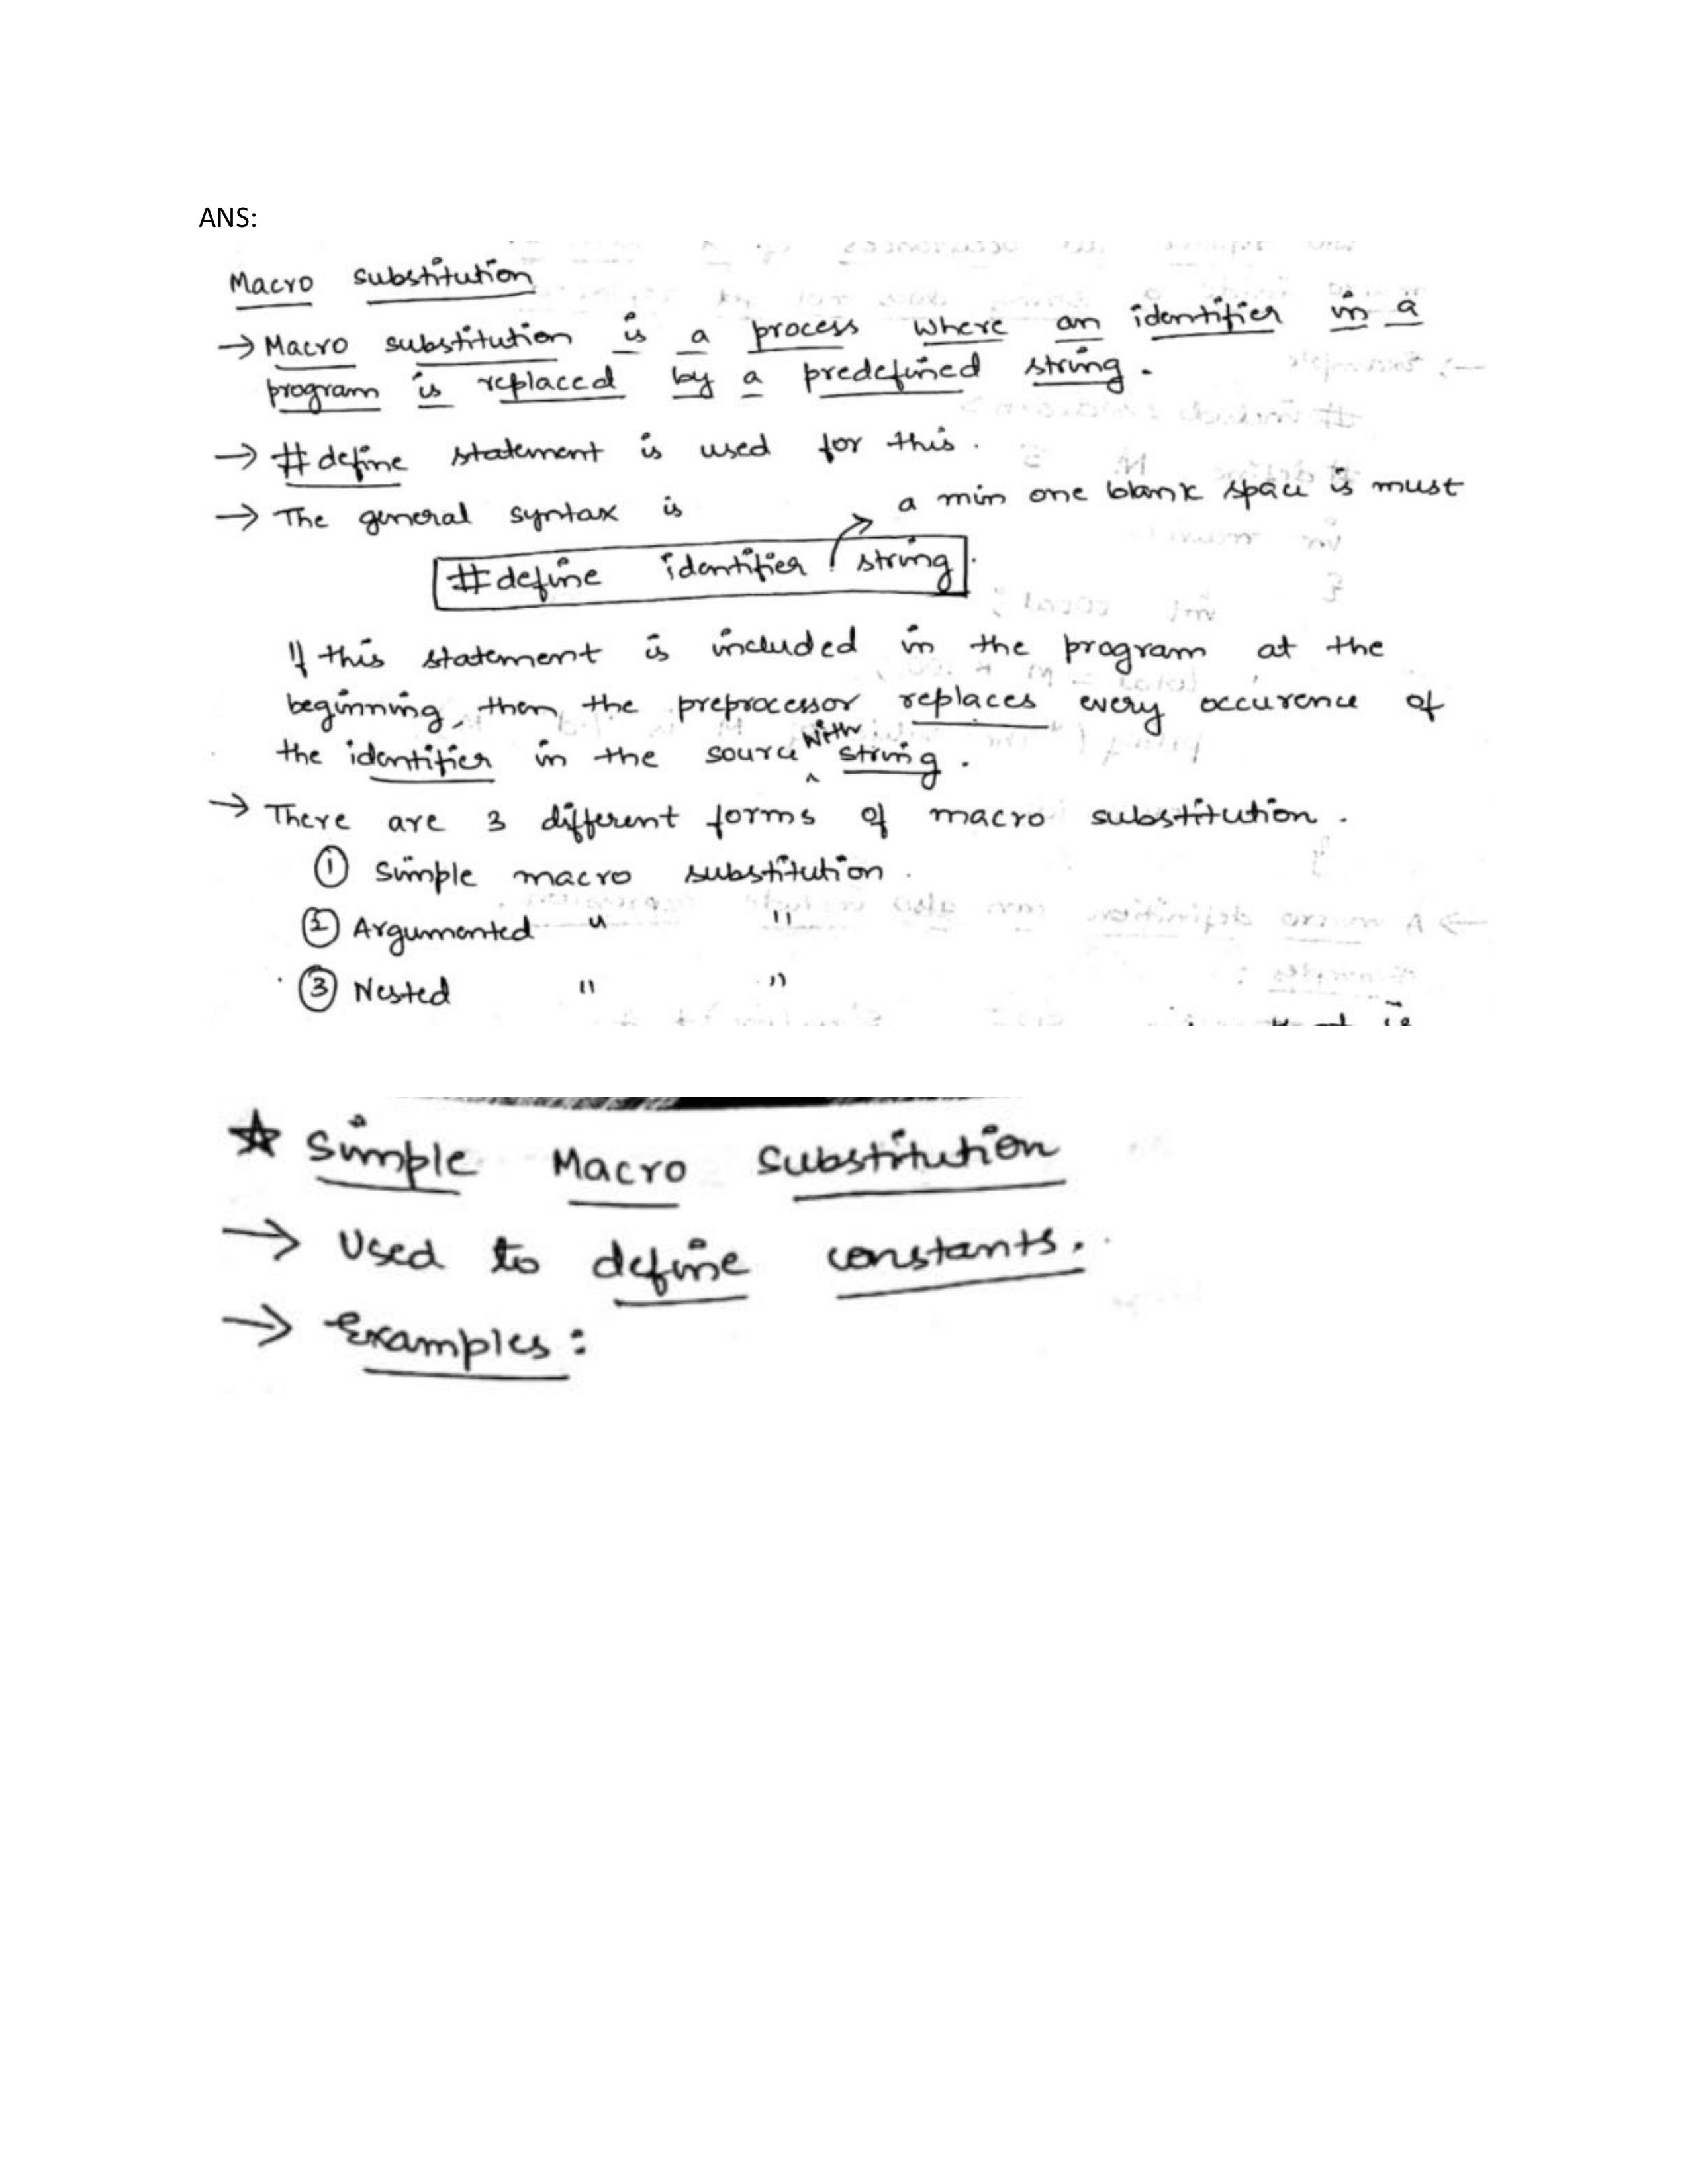 ANS:
Macro substitution
→ Macro substitution is a process where an identifier in a
program is replaced by a predefined string.
→ #define statement is used for this.
→ The general syntax is
a min one blank space is must
#define identifier string.
If this statement is included in the program at the
beginning, then the preprocessor replaces every occurence of
the identifier in the source with string.
→ There are 3 different forms of macro substitution.
① Simple macro substitution.
② Argumented " "
③ Nested " "
★ Simple Macro Substitution
→ Used to define constants.
→ Examples: